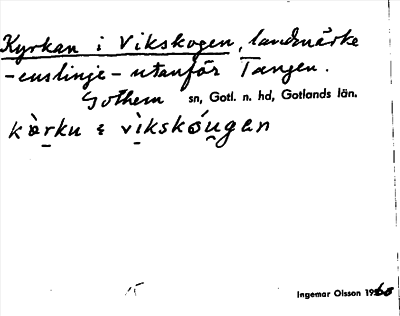 Kyrkan i Vikskogen, landmärke
-enslinje- utanför Tangen.
Gothem sn, Gotl. n. hd, Gotlands län.
kò̱rku ε vì̱kskóu̯gan
15
Ingemar Olsson 1960